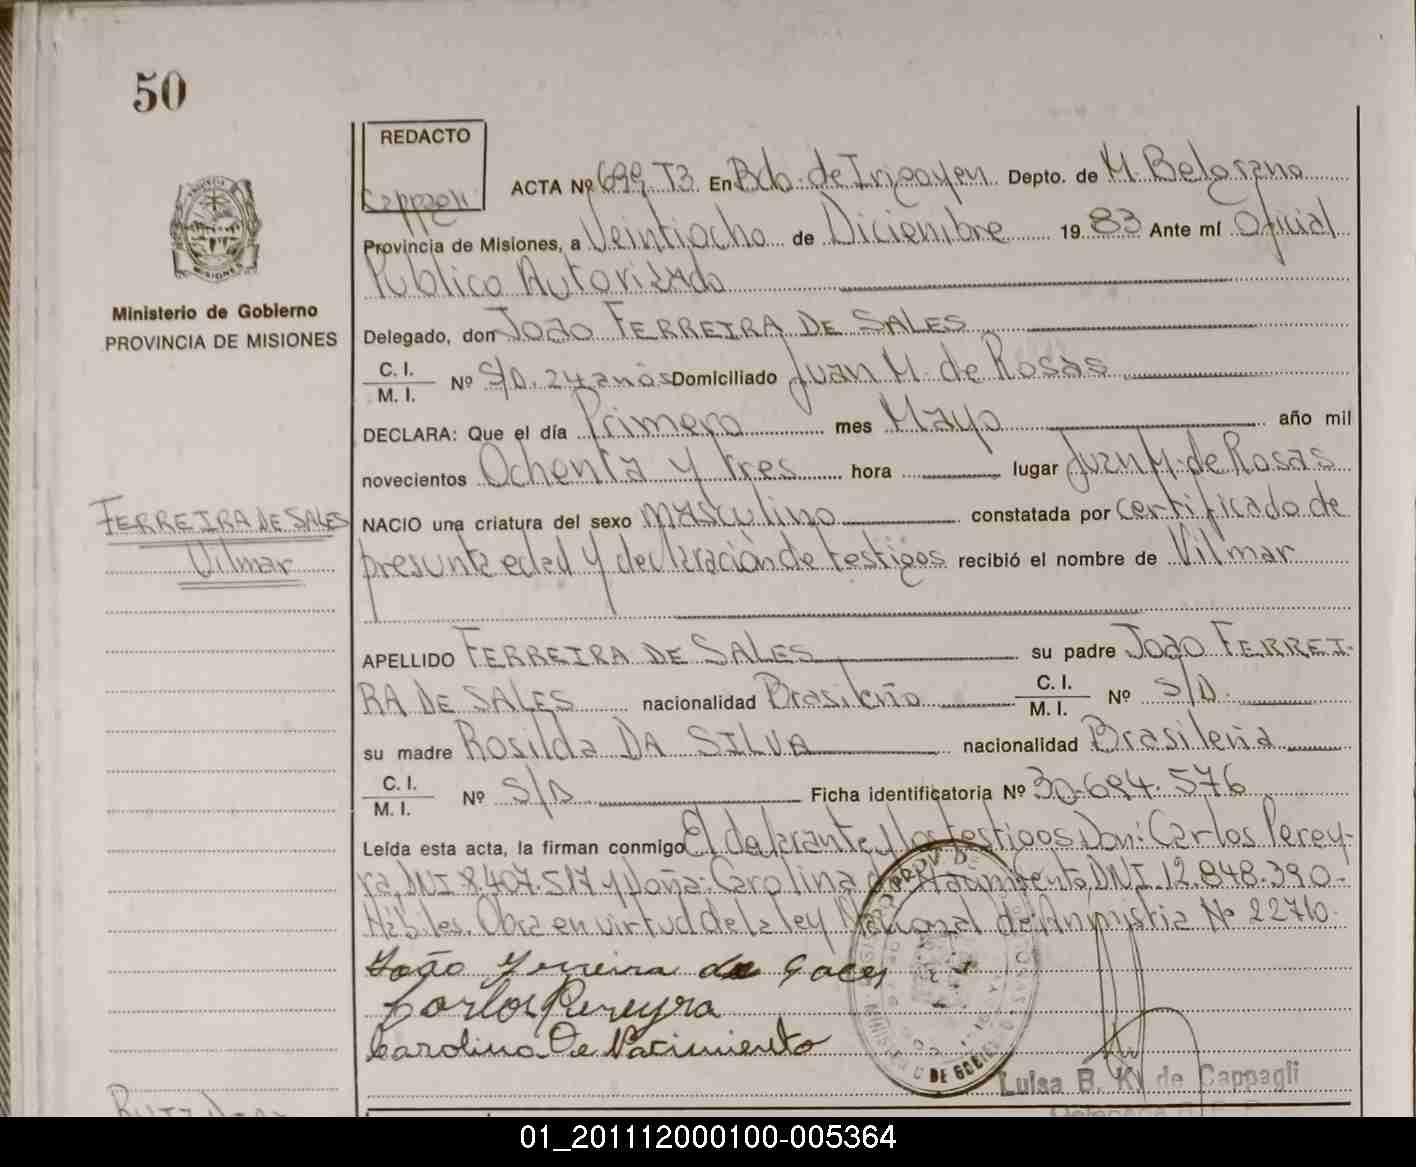 50
REDACTO
Cappagli
ACTA Nº 699 T3 En Bdo. de Irigoyen Depto. de M. Belgrano
Provincia de Misiones, a Veintiocho de Diciembre 1983 Ante mí Oficial
Publico Autorizado
Ministerio de Gobierno
PROVINCIA DE MISIONES
Delegado, don João FERREIRA DE SALES
C. I.
M. I. Nº S/D. 24 años Domiciliado Juan M. de Rosas
DECLARA: Que el día Primero mes Mayo año mil
novecientos Ochenta y tres hora lugar Juan M. de Rosas
FERREIRA DE SALES
Vilmar
NACIO una criatura del sexo masculino constatada por certificado de
presunta edad y declaración de testigos recibió el nombre de Vilmar
APELLIDO FERREIRA DE SALES su padre João FERREI-
RA DE SALES nacionalidad Brasileño C. I.
M. I. Nº S/D.
su madre Rosilda DA SILVA nacionalidad Brasileña
C. I.
M. I. Nº S/D Ficha identificatoria Nº 30.694.576
Leída esta acta, la firman conmigo El declarante y los testigos Don: Carlos Perey-
ra, DNI 8.407.517 y Doña: Carolina de Nacimiento DNI 12.848.390-
Hábiles. Obra en virtud de la ley Nacional de Amnistia Nº 22710.
João Ferreira de Sales
Carlos Pereyra
Carolina De Nacimiento
Luisa B. K. de Cappagli
01_201112000100-005364